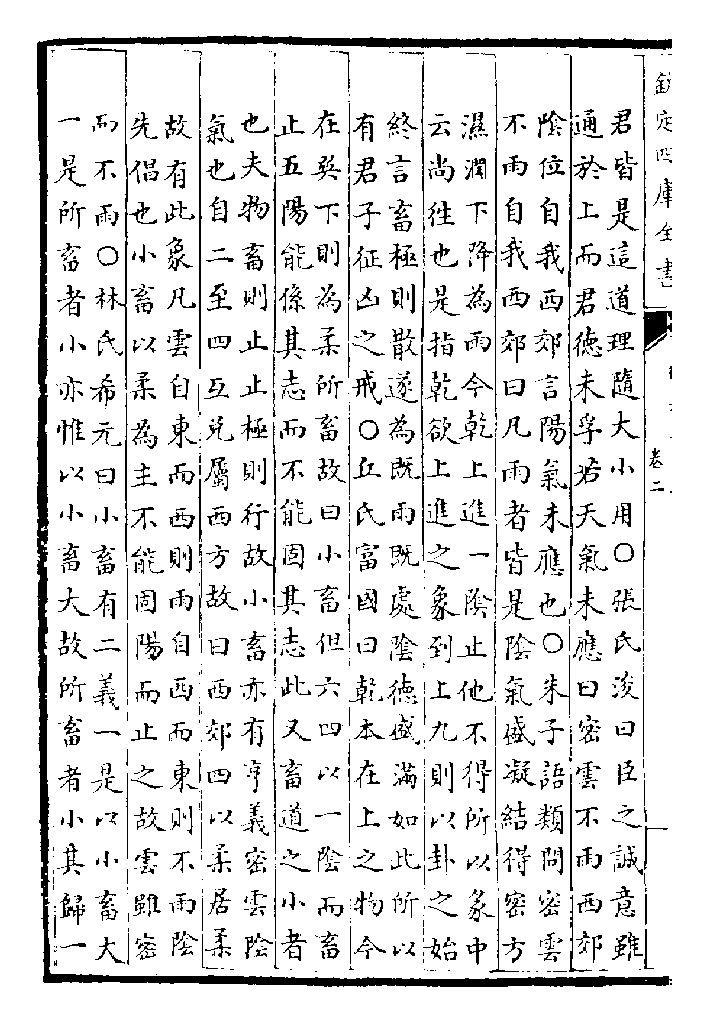 欽定四庫全書
卷二
君皆是這道理隨大小用○張氏浚曰臣之誠意雖
通於上而君德未孚若天氣未應曰密雲不雨西郊
陰位自我西郊言陽氣未應也○朱子語類問密雲
不雨自我西郊曰凡雨者皆是陰氣盛凝結得密方
濕潤下降為雨今乾上進一陰止他不得所以彖中
云尚往也是指乾欲上進之象到上九則以卦之始
終言畜極則散遂為既雨既處陰德盛滿如此所以
有君子征凶之戒○丘氏富國曰乾本在上之物今
在巽下則為柔所畜故曰小畜但六四以一陰而畜
止五陽能係其志而不能固其志此又畜道之小者
也夫物畜則止止極則行故小畜亦有亨義密雲陰
氣也自二至四互兌屬西方故曰西郊四以柔居柔
故有此象凡雲自東而西則雨自西而東則不雨陰
先倡也小畜以柔為主不能固陽而止之故雲雖密
而不雨○林氏希元曰小畜有二義一是以小畜大
一是所畜者小亦惟以小畜大故所畜者小其歸一